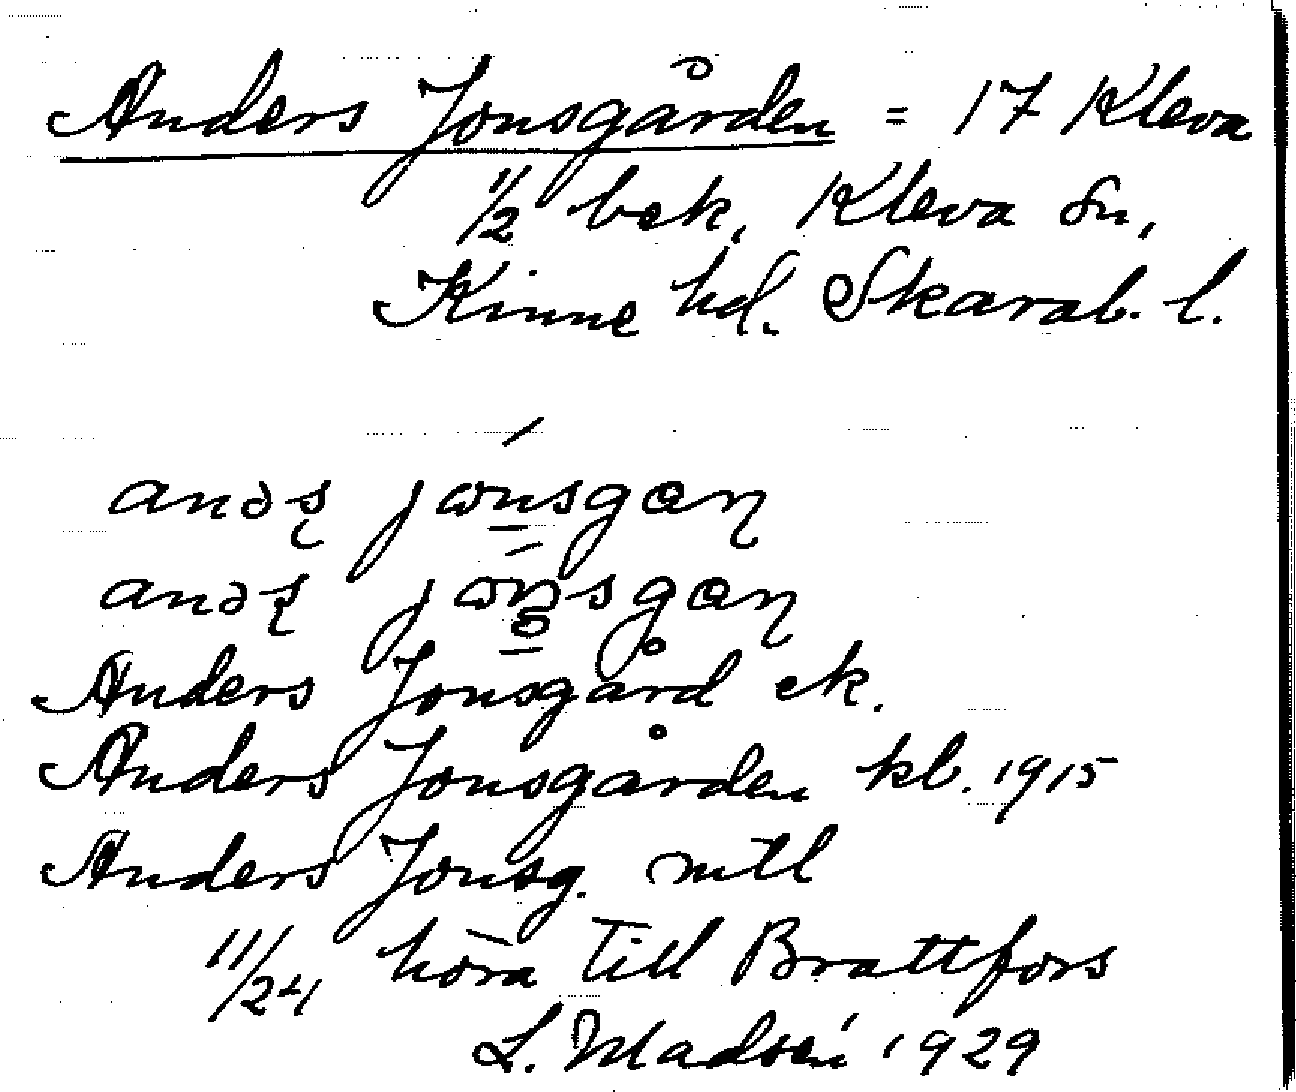 Anders Jonsgården = 17 Kleva
1/2 bek, Kleva sn,
Kinne hd. Skarab. l.
andəʂ jɷnsgɑɳ
andəʂ jɷnsgɑɳ
Anders Jonsgård ek.
Anders Jonsgården kb. 1915
Anders Jonsg. mtl
11/24 höra till Brattfors
L. Madsén 1929